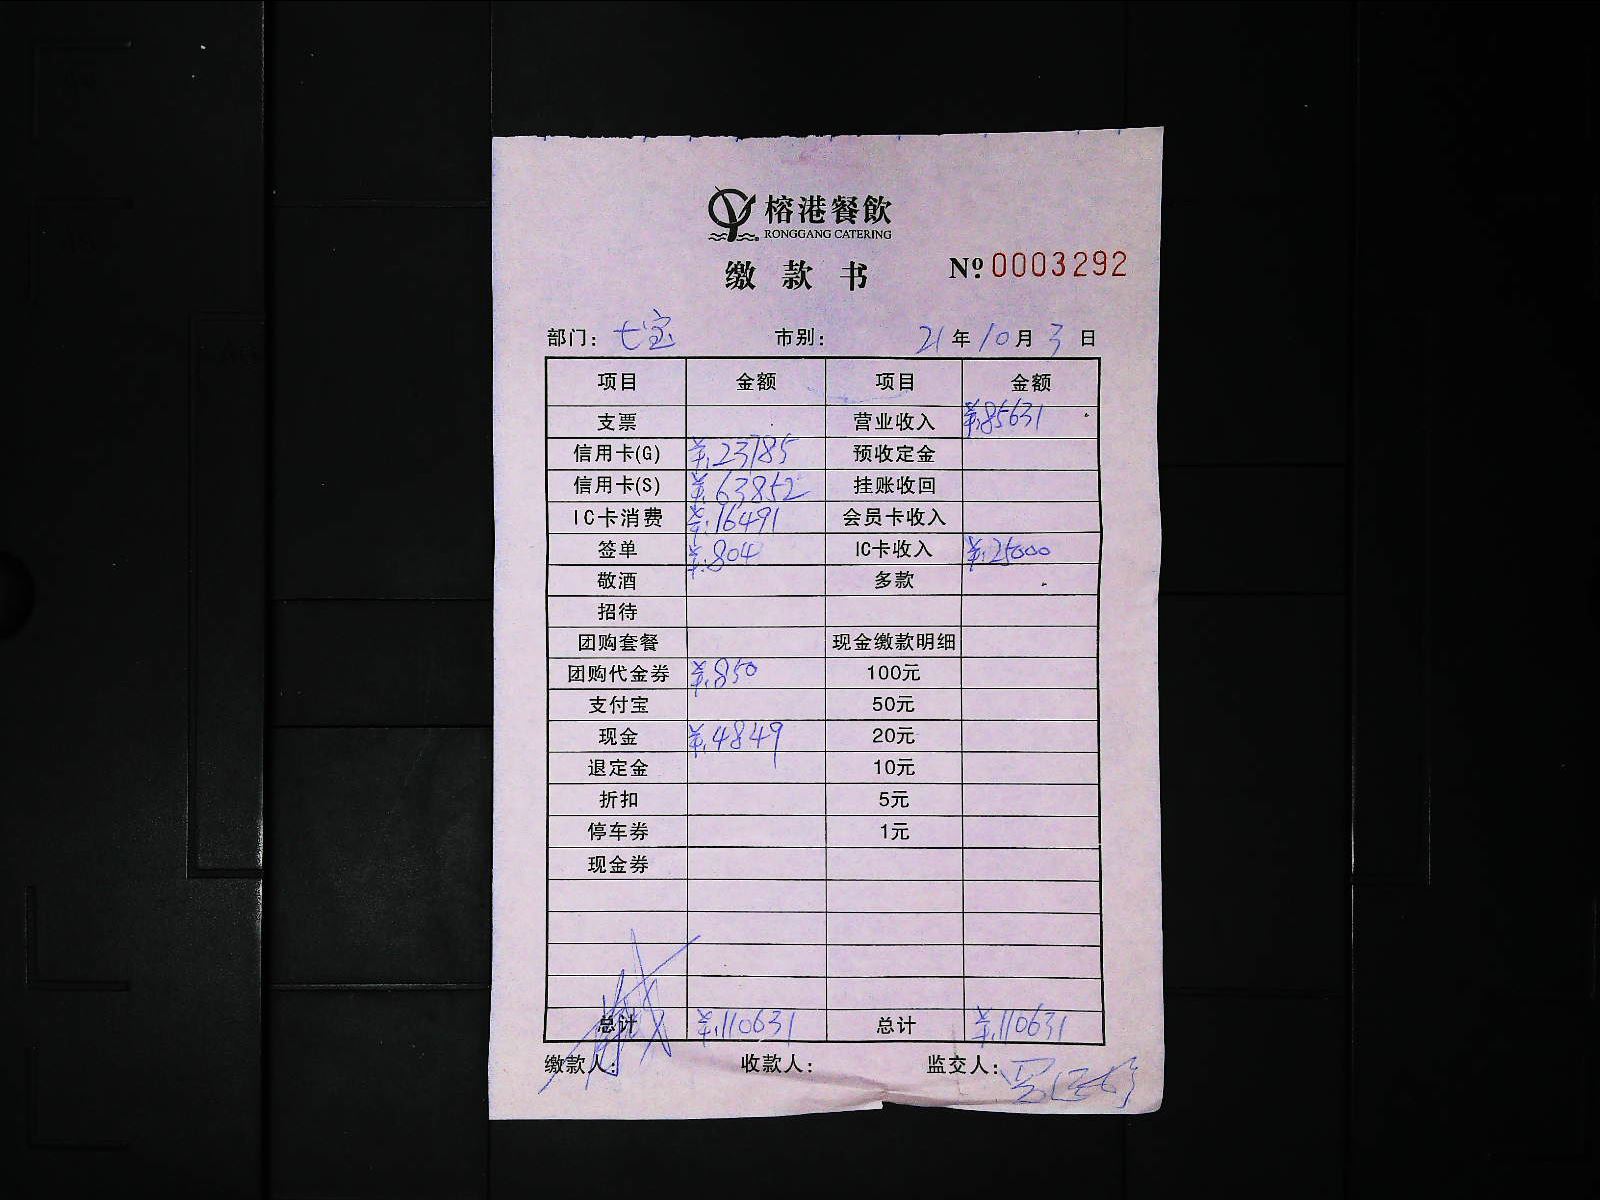 榕港餐飲
RONGGANG CATERING
缴款书 Nº 0003292
部门: 七宝 市别: 21年10月3日
项目 金额 项目 金额
支票 营业收入 ¥:85631
信用卡(G) ¥:23785 预收定金
信用卡(S) ¥:63852 挂账收回
IC卡消费 ¥:16491 会员卡收入
签单 ¥:804 IC卡收入 ¥:25000
敬酒 多款
招待
团购套餐 现金缴款明细
团购代金券 ¥:850 100元
支付宝 50元
现金 ¥:4849 20元
退定金 10元
折扣 5元
停车券 1元
现金券
总计 ¥:110631 总计 ¥:110631
缴款人: 收款人: 监交人: